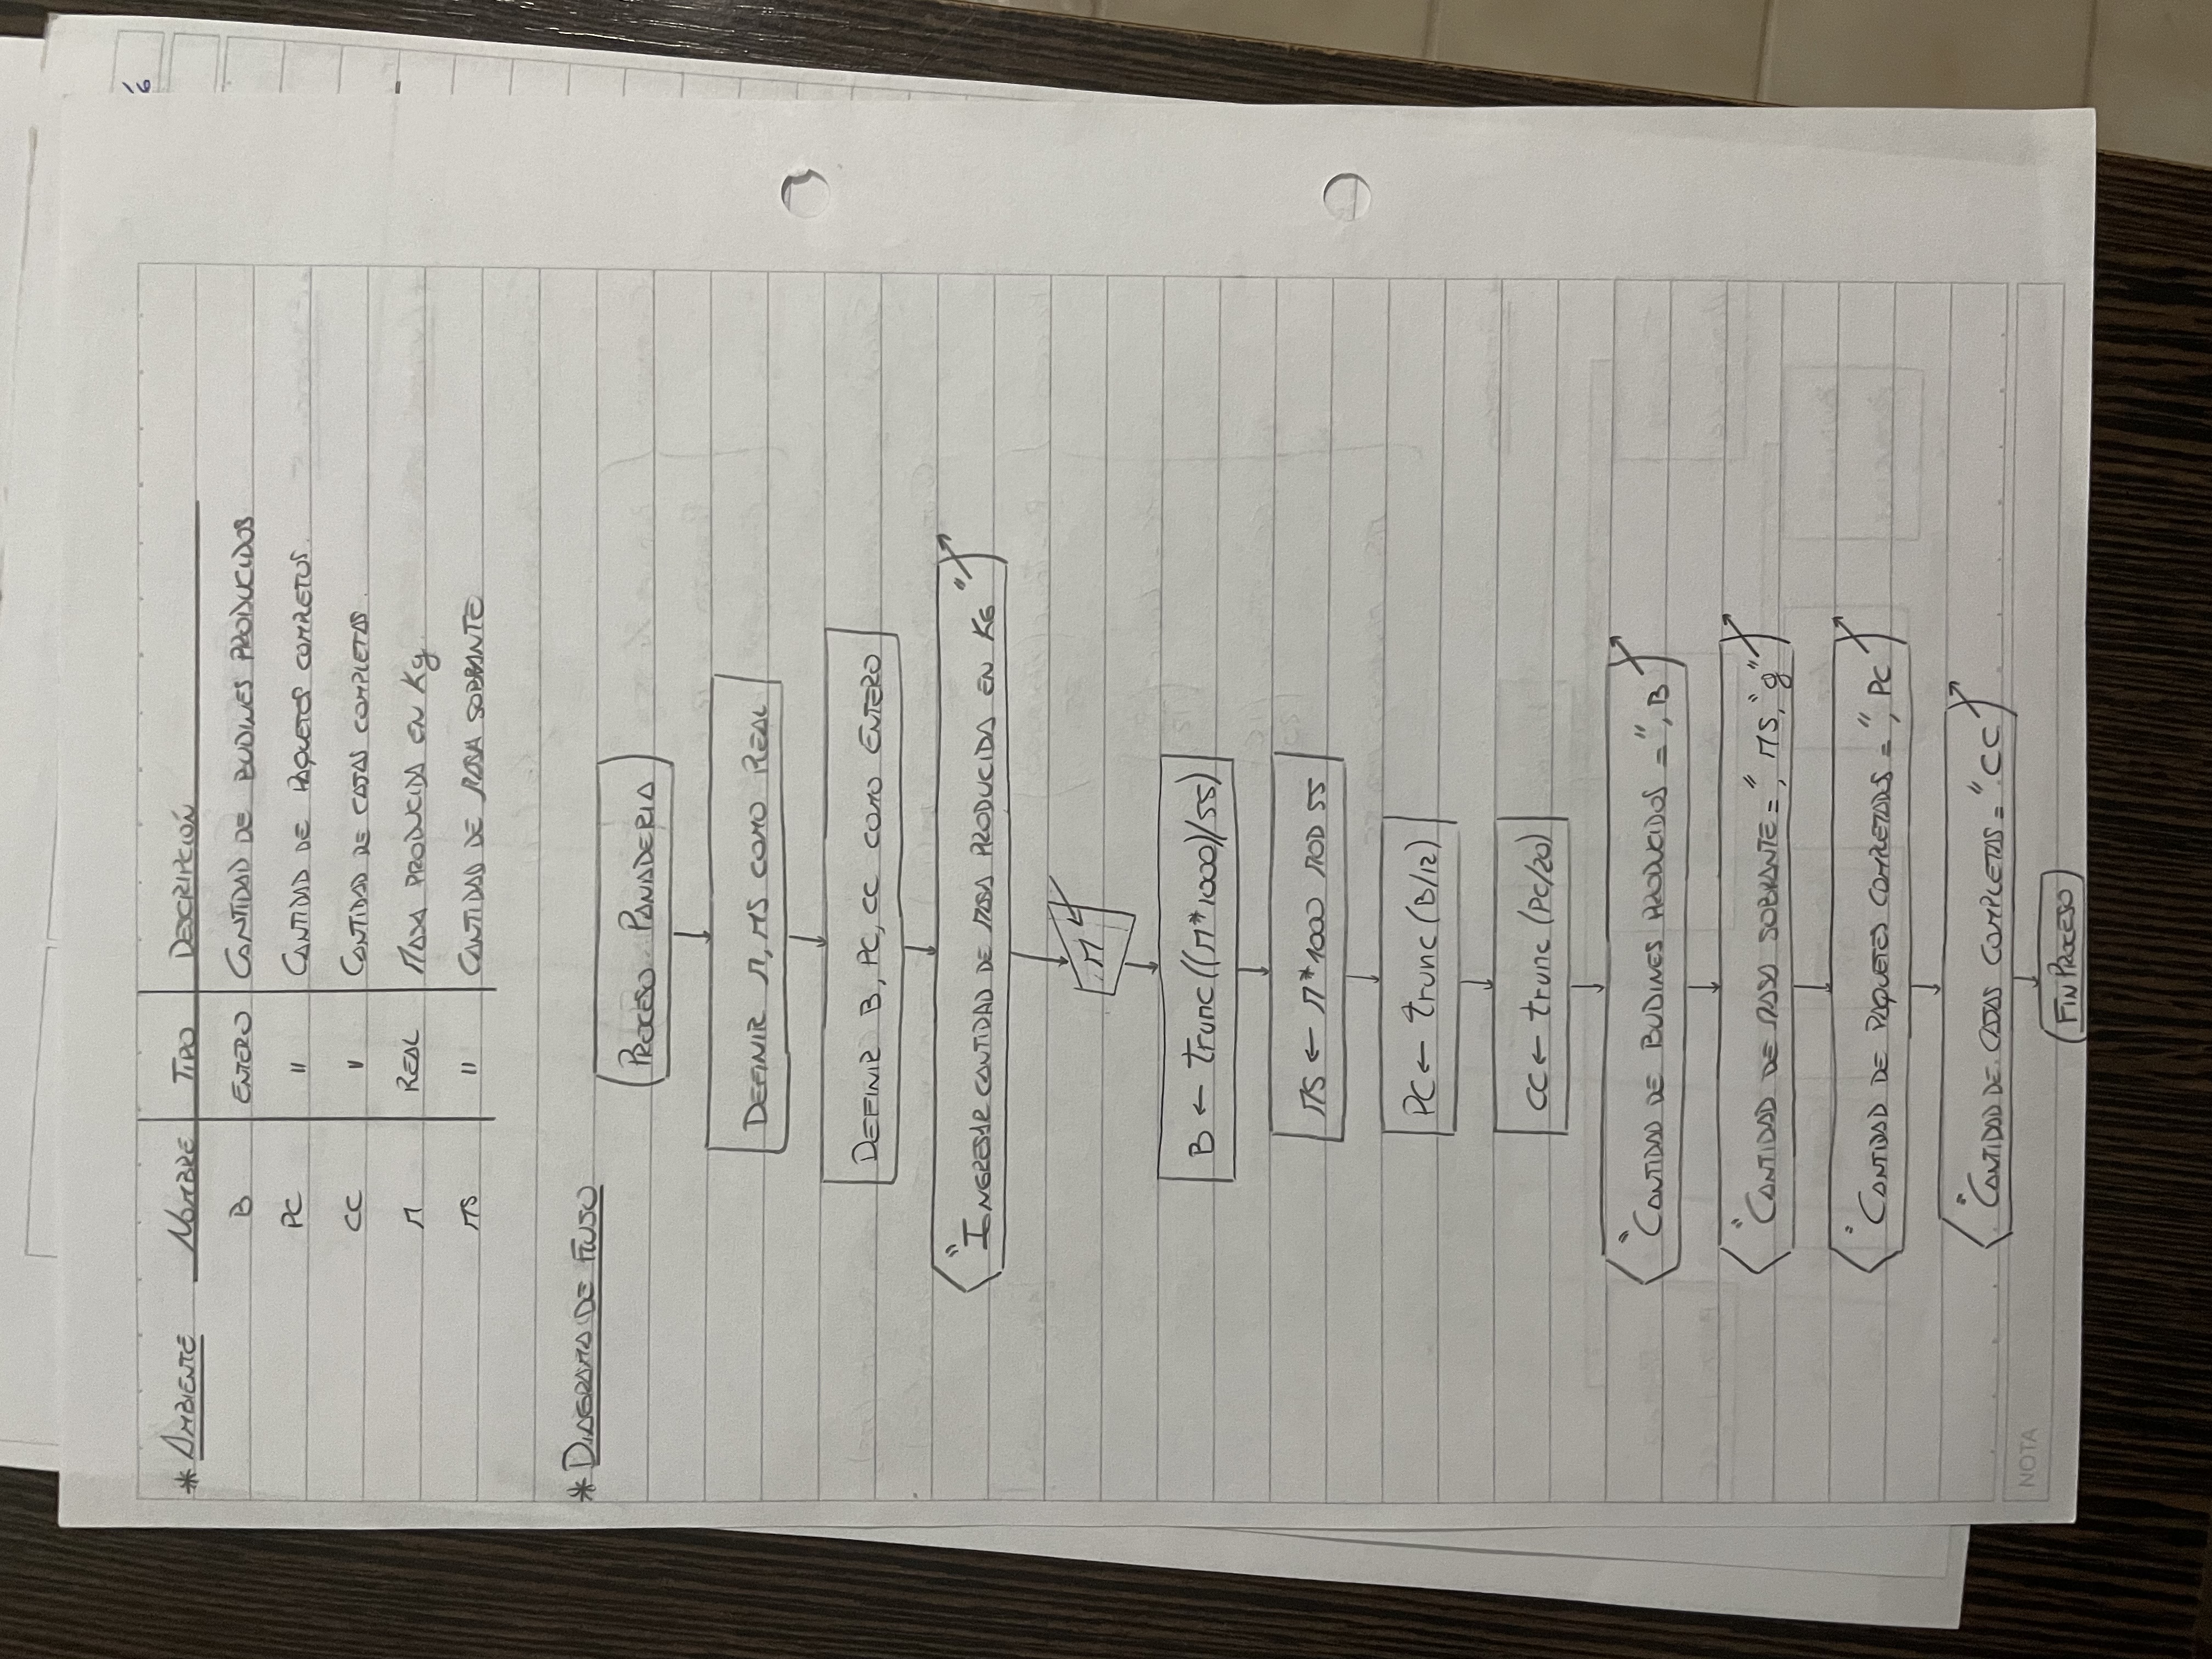 * AMBIENTE NOMBRE TIPO DESCRIPCIÓN
B ENTERO CANTIDAD DE BUDINES PRODUCIDOS
PC " CANTIDAD DE PAQUETES COMPLETOS.
CC " CANTIDAD DE CAJAS COMPLETAS.
M REAL MASA PRODUCIDA EN Kg
MS " CANTIDAD DE MASA SOBRANTE
* DIAGRAMA DE FLUJO
PROCESO PANADERIA
DEFINIR M, MS COMO REAL
DEFINIR B, PC, CC COMO ENTERO
"INGRESAR CANTIDAD DE MASA PRODUCIDA EN KG"
M
B ← trunc((M*1000)/55)
MS ← M*1000 MOD 55
PC ← trunc(B/12)
CC ← trunc(PC/20)
"CANTIDAD DE BUDINES PRODUCIDOS =", B
"CANTIDAD DE MASA SOBRANTE =", MS, "g"
"CANTIDAD DE PAQUETES COMPLETADOS =", PC
"CANTIDAD DE CAJAS COMPLETAS = " CC
NOTA
FIN PROCESO